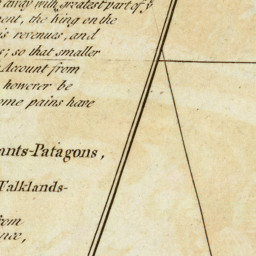 with greatest part of yͤ
ment, the king on the
is revenues, and
s; so that smaller
Account from
however be
ome pains have
ants-Patagons,
Talklands-
from
nce,